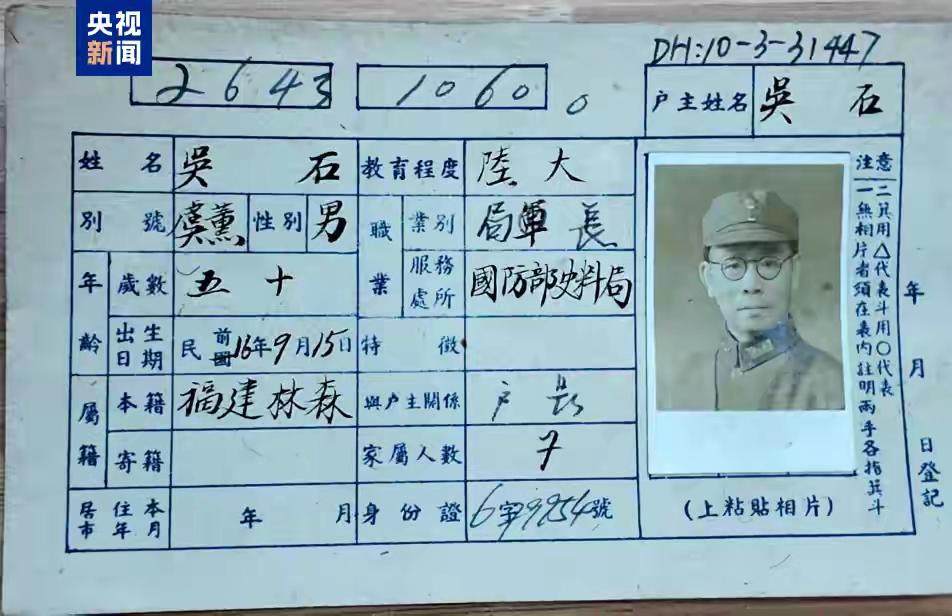 央视
新闻
DH:10-3-31447
2643 1060。
户主姓名 吳石
姓名 吳石 教育程度 陸大
別號 虞薰 性別 男 職業 業別 局軍長
年齡 歲數 五十 服務處所 國防部史料局
出生日期 民前國16年9月15日 特徵
屬籍 本籍 福建林森 與户主關係 户長
寄籍 家屬人數 7
居住本市年月 年 月 身份證 6字9254號
注意
一無相片者須在表内註明兩手各指箕斗
二箕用△代表斗用○代表
(上粘貼相片)
年 月 日登記